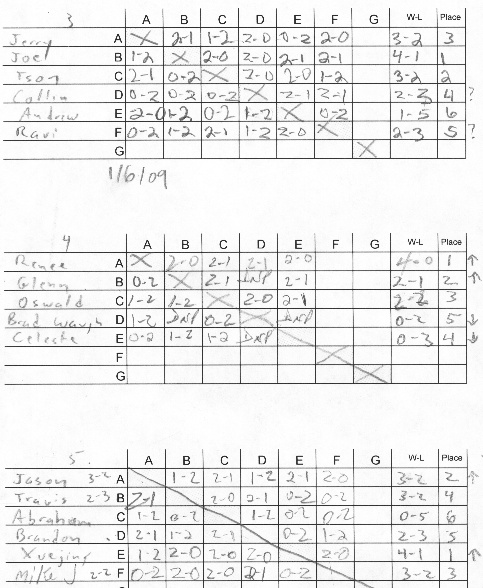 3 A B C D E F G W-L Place
Jerry A X 2-1 1-2 2-0 0-2 2-0 3-2 3
Joel B 1-2 X 2-0 2-0 2-1 2-1 4-1 1
Tson C 2-1 0-2 X 2-0 2-0 1-2 3-2 2
Collin D 0-2 0-2 0-2 X 2-1 2-1 2-3 4 ?
Andrew E 2-0 1-2 0-2 1-2 X 0-2 1-5 6
Ravi F 0-2 1-2 2-1 1-2 2-0 X 2-3 5 ?
G X
1/6/09
4 A B C D E F G W-L Place
Renee A X 2-0 2-1 2-1 2-0 4-0 1 ↑
Glenn B 0-2 X 2-1 DNP 2-1 2-1 2 ↑
Oswald C 1-2 1-2 X 2-0 2-1 2-2 3
Brad Waugh D 1-2 DNP 0-2 DNP 0-2 5 ↓
Celeste E 0-2 1-2 1-2 DNP 0-3 4 ↓
F X
G X
5. A B C D E F G W-L Place
Jason 3-2 A 1-2 2-1 1-2 2-1 2-0 3-2 2 ↑
Travis 2-3 B 2-1 2-0 2-1 0-2 0-2 3-2 4
Abraham C 1-2 0-2 1-2 0-2 0-2 0-5 6
Brandon D 2-1 1-2 2-1 0-2 1-2 2-3 5
Xuejing E 1-2 2-0 2-0 2-0 2-0 4-1 1 ↑
Mike 2-2 F 0-2 2-0 2-0 2-1 0-2 3-2 3